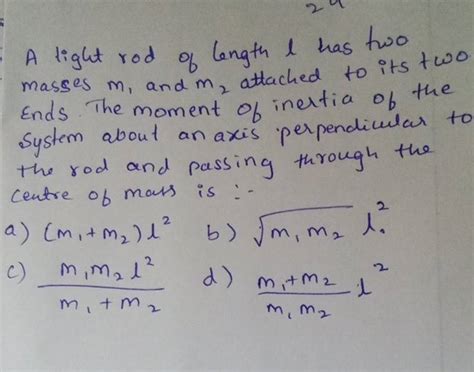 A light rod of length l has two
masses m₁ and m₂ attached to its two
Ends. The moment of inertia of the
System about an axis perpendicular to
the rod and passing through the
Centre of mass is :-
a) (m₁+m₂)l² b) √m₁m₂ l².
c) m₁m₂l² / m₁+m₂ d) m₁+m₂ / m₁m₂ l²